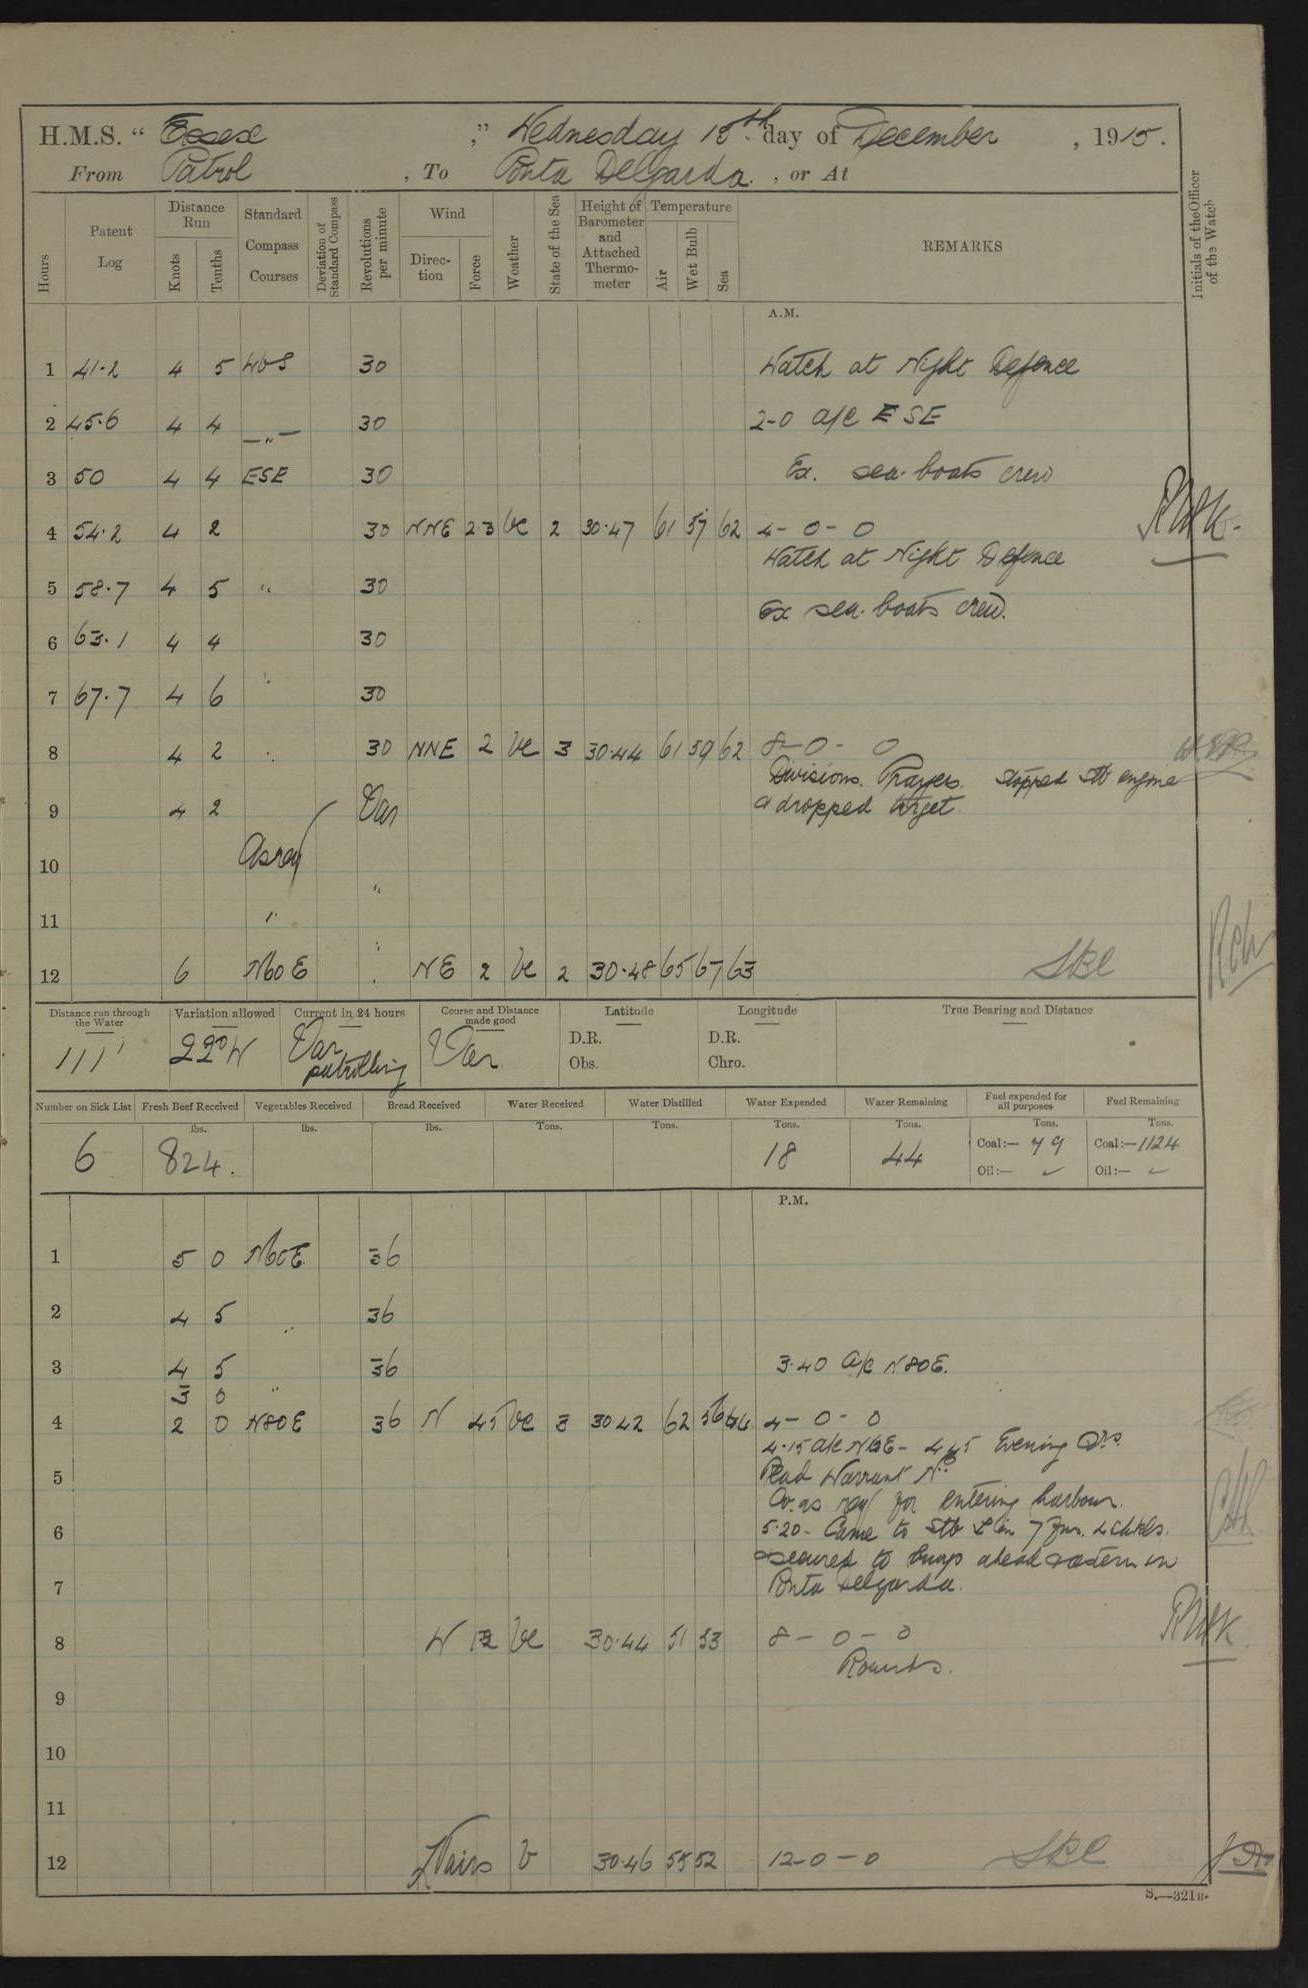 H.M.S. “ Essex ,” Wednesday 15th day of December , 1915.
From Patrol , To Ponta Delgarda. , or At
Hours Patent Log Distance Run Knots Tenths Standard Compass Courses Deviation of Standard Compass Revolutions per minute Wind Direction Force Weather State of the Sea Height of Barometer and Attached Thermometer Temperature Air Wet Bulb Sea REMARKS Initials of the Officer of the Watch
A.M.
1 41.2 4 5 WbS 30 Watch at Night Defence
2 45.6 4 4 —„— 30 2-0 a/c ESE
3 50 4 4 ESE 30 Ex. sea-boats crew
4 54.2 4 2 30 NNE 2.3 bc 2 30.47 61 57 62 4-0-0
Watch at Night Defence
5 58.7 4 5 " 30
Ex sea-boats crew.
6 63.1 4 4 30
7 67.7 4 6 " 30
8 4 2 " 30 NNE 2 bc 3 30.44 61 59 62 8-0-0
Divisions. Prayers. Stopped Stb engine
9 4 2 Var & dropped target.
10 As req "
11 " "
12 6 N60E NE 2 bc 2 30.48 65 67 63
Distance run through the Water Variation allowed Current in 24 hours Course and Distance made good Latitude Longitude True Bearing and Distance
111' 22°W Var patrolling Var D.R. D.R.
Obs. Chro.
Number on Sick List Fresh Beef Received Vegetables Received Bread Received Water Received Water Distilled Water Expended Water Remaining Fuel expended for all purposes Fuel Remaining
lbs. lbs. lbs. Tons. Tons. Tons. Tons. Tons. Tons.
6 824. 18 44 Coal:— 79 Coal:—1124
Oil:— ✓ Oil:— ✓
P.M.
1 5 0 N60E 36
2 4 5 " 36
3 4 5 36 3.40 a/c N80E.
3 0 "
4 2 0 N80E 36 N 45 bc 3 30.42 62 56 4-0-0
4.15 a/c - 4.45 Evening Qrs.
5 Read Warrant No
Co. as req for entering harbour.
6 5.20- Came to Stb in 7 fms. 4 shkls.
secured to buoys ahead & astern in
7 Ponta Delgarda.
8 W bc 30.44 51 53 8-0-0
Rounds.
9
10
11
12 Airs b 30.46 55 52 12-0-0
S.—321B.